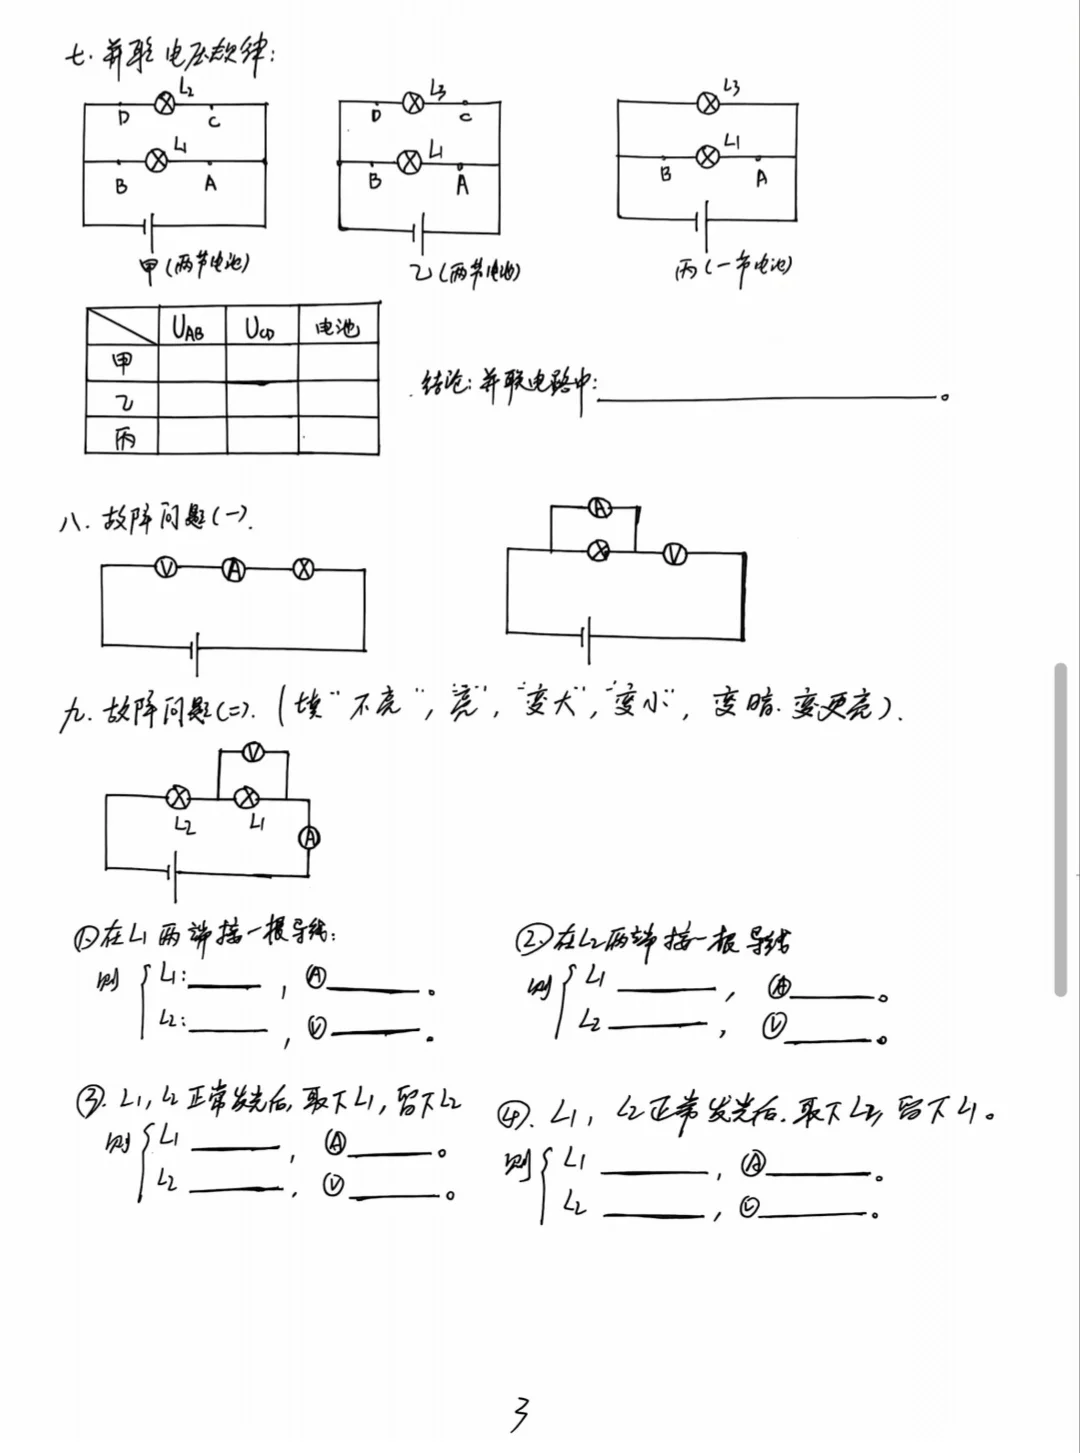 七. 并联电压规律:
L2 L3 L3
D C D C
L1 L1 L1
B A B A B A
甲(两节电池) 乙(两节电池) 丙(一节电池)
UAB UCD 电池
甲
乙
丙
结论: 并联电路中: 。
八. 故障问题(一).
A
V A V
九. 故障问题(二). (填"不亮","亮","变大","变小", 变暗. 变更亮).
V
L2 L1
A
① 在L1两端接一根导线:
则 L1: , A 。
L2: , V 。
② 在L2两端接一根导线
则 L1 , A 。
L2 , V 。
③. L1, L2正常发光后, 取下L1, 留下L2
则 L1 , A 。
L2 , V 。
④. L1, L2正常发光后. 取下L2, 留下L1。
则 L1 , A 。
L2 , V 。
3